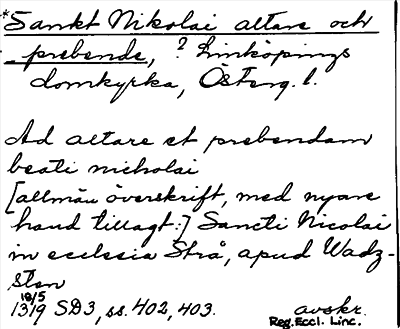 *Sankt Nikolai altare och
prebende, ? Linköpings
domkyrka, Österg. l.
Ad altare et prebendam
beati nicholai
[allmän överskrift, med nyare
hand tillagt:] Sancti Nicolai
in ecclesia Strå, apud Wadz-
sten
18/5
1319 SD3, ss. 402, 403. avskr.
Reg. Eccl. Linc.